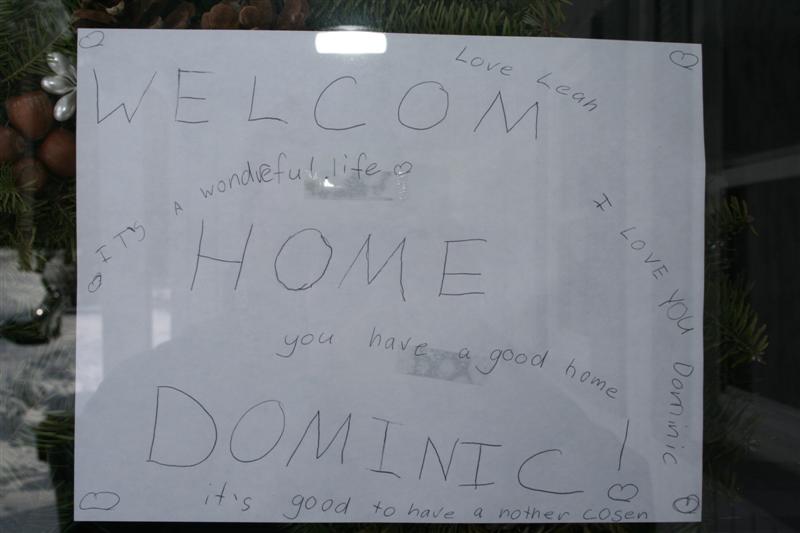 Love Leah
WELCOM
IT'S A wondreful life
I LOVE YOU Dominic
HOME
you have a good home
DOMINIC!
it's good to have a nother cosen